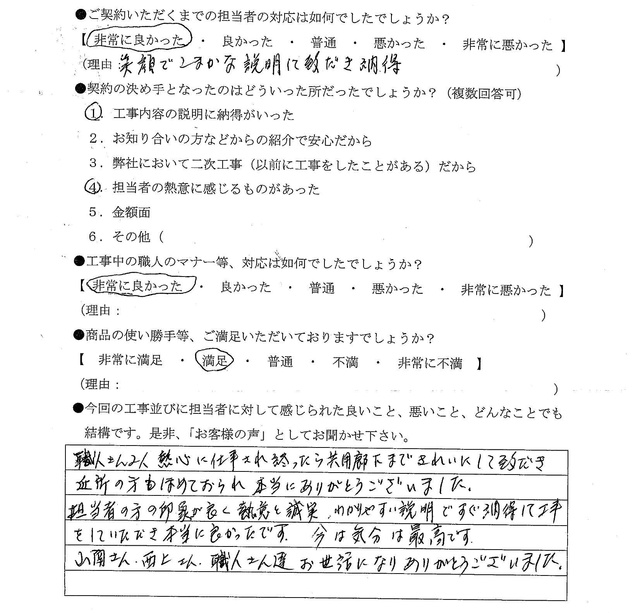 ●ご契約いただくまでの担当者の対応は如何でしたでしょうか？
【 非常に良かった ・ 良かった ・ 普通 ・ 悪かった ・ 非常に悪かった 】
(理由 笑顔でこまかな説明に致だき納得 )
●契約の決め手となったのはどういった所だったでしょうか？（複数回答可）
1．工事内容の説明に納得がいった
2．お知り合いの方などからの紹介で安心だから
3．弊社において二次工事（以前に工事をしたことがある）だから
4．担当者の熱意に感じるものがあった
5．金額面
6．その他（ ）
●工事中の職人のマナー等、対応は如何でしたでしょうか？
【 非常に良かった ・ 良かった ・ 普通 ・ 悪かった ・ 非常に悪かった 】
(理由： )
●商品の使い勝手等、ご満足いただいておりますでしょうか？
【 非常に満足 ・ 満足 ・ 普通 ・ 不満 ・ 非常に不満 】
(理由： )
●今回の工事並びに担当者に対して感じられた良いこと、悪いこと、どんなことでも
結構です。是非、「お客様の声」としてお聞かせ下さい。
職人さん2人 熱心に仕事され終ったら共用廊下まできれいにして致だき
近所の方もほめておられ 本当にありがとうございました。
担当者の方の印象が良く 熱意と誠実 わかりやすい説明ですぐ納得して工事
をしていただき本当に良かったです。 今は気分は最高です。
山関さん．西上さん．職人さん達 お世話になりありがとうございました。